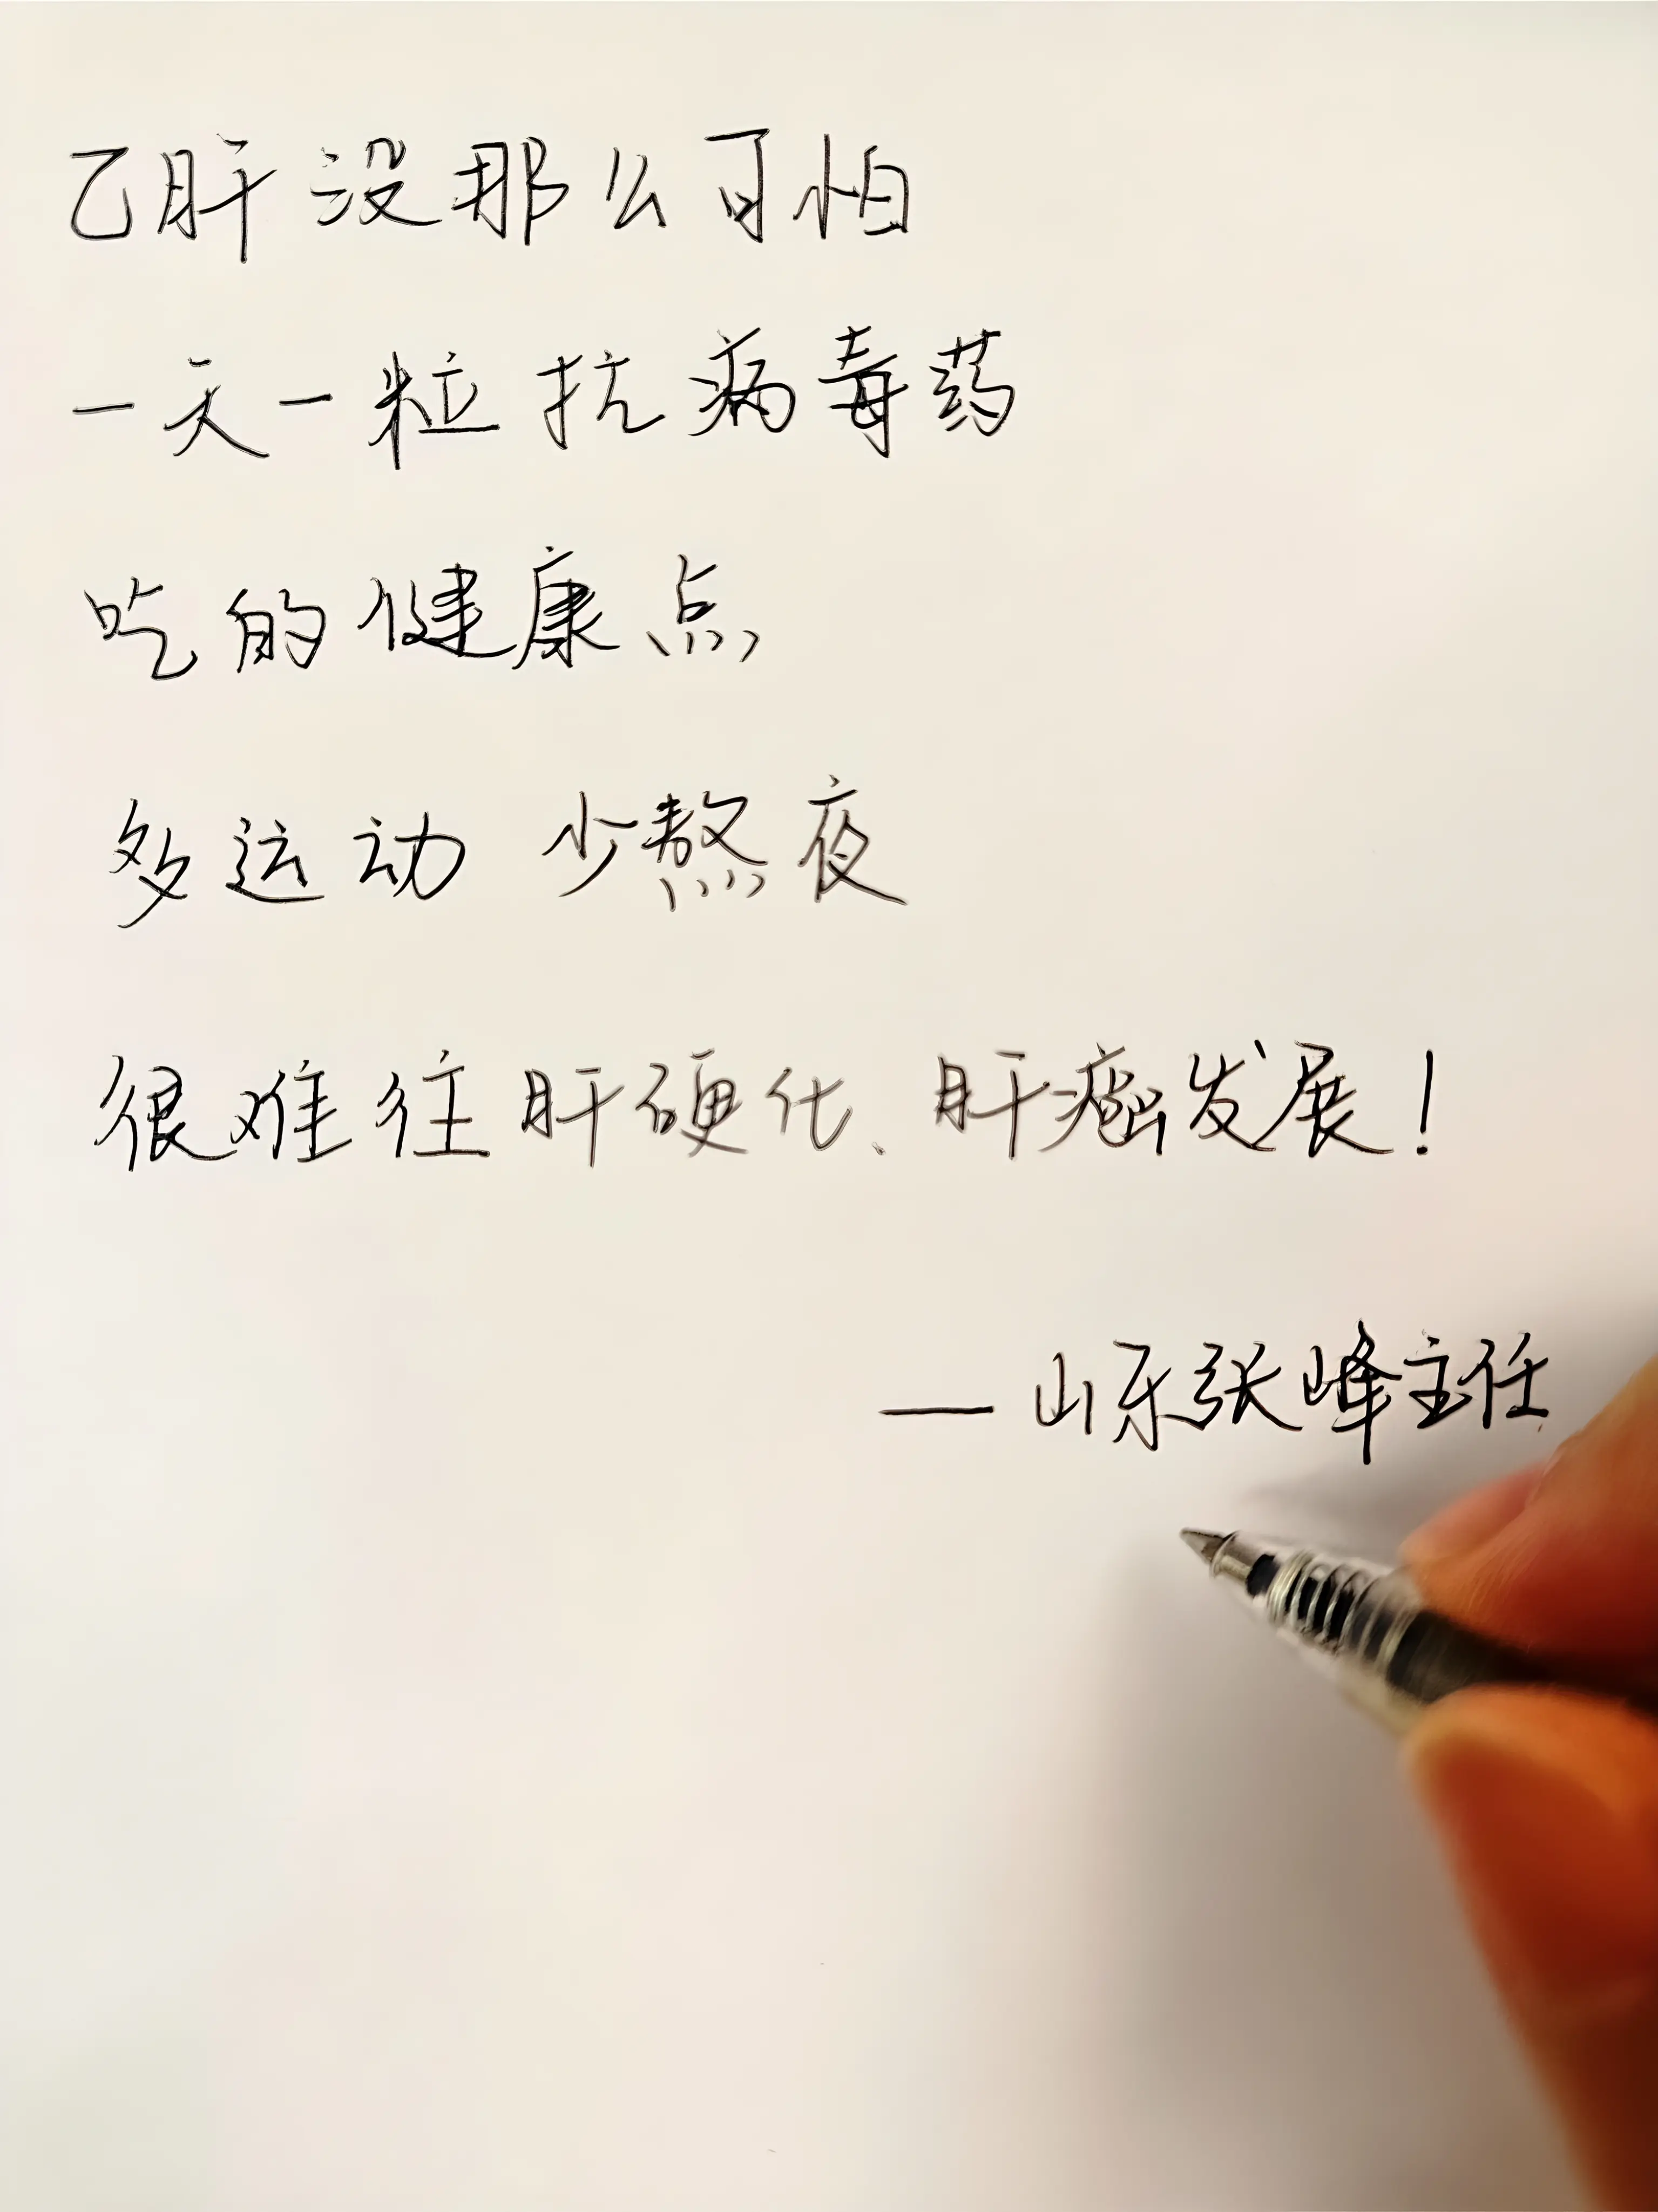 乙肝没那么可怕
一天一粒抗病毒药
吃的健康点
多运动 少熬夜
很难往肝硬化、肝癌发展!
— 山东张峰主任